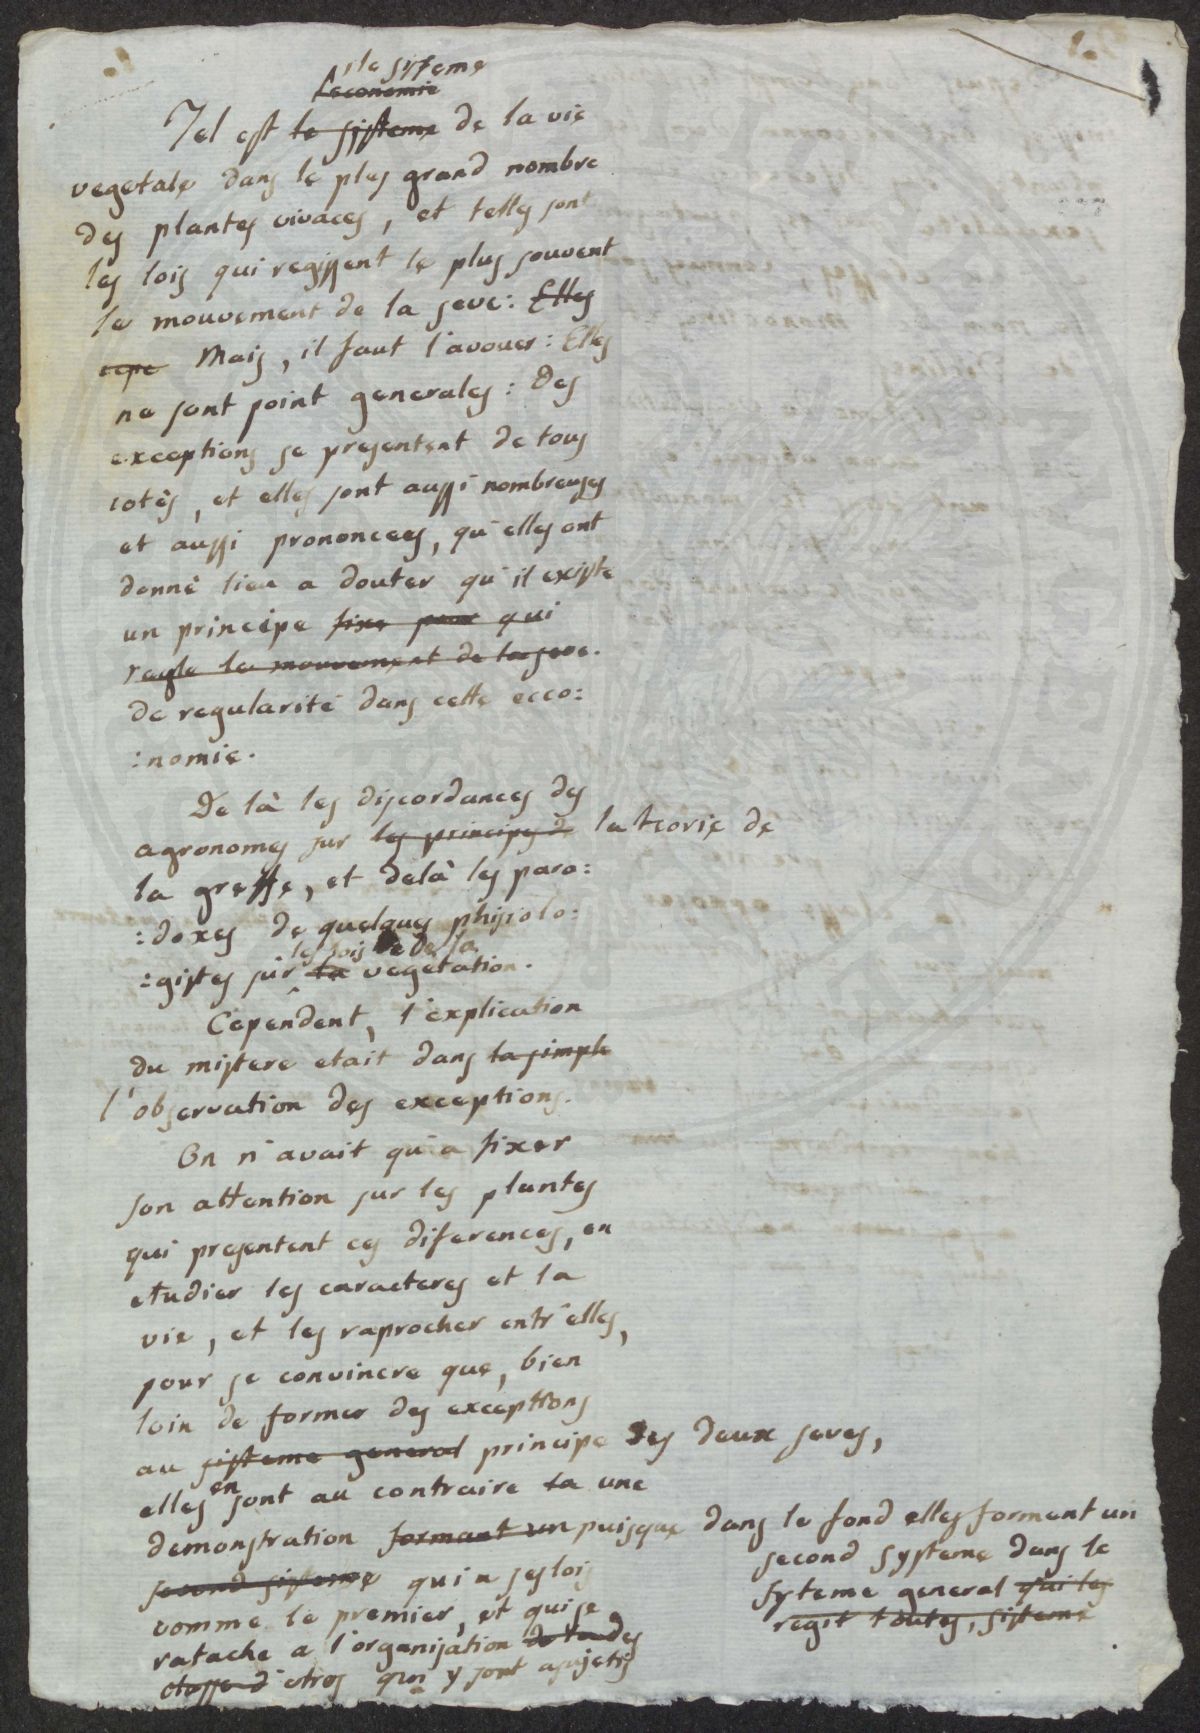 le systeme
l'economie
Tel est le sisteme de la vie
vegetale dans le plus grand nombre
des plantes vivaces, et telles sont
les lois qui regissent le plus souvent
le mouvement de la seve: Elles
cepe Mais, il faut l'avouer: Elles
ne sont point generales: Des
exceptions se presentent de tous
cotés, et elles sont aussi nombreuses
et aussi prononcees, qu'elles ont
donné lieu a douter qu'il existe
un principe fixe pour qui
regle le mouvement de la seve.
de regularité dans cette ecco:
:nomie.
De là les discordances des
agronomes sur les principes de la teorie de
la greffe, et delà les para:
:doxes de quelques phisiolo:
les lois de de la
:gistes sur la vegetation.
Cependent, l'explication
du mistere etait dans la simple
l'observation des exceptions.
On n'avait qu'a fixer
son attention sur les plantes
qui presentent ces diferences, en
etudier les caracteres et la
vie, et les raprocher entr'elles,
pour se convincre que, bien
loin de former des exceptions
au sisteme general principe des deux seves,
elles en sont au contraire la une
demonstration formant un puisque dans le fond elles forment un
second systeme dans le
systeme general qui les
regit toutes, sisteme
second sisteme qui a ses lois
comme le premier, et qui se
ratache a l'organisation de la des
classe d'etres qui y sont asujetis